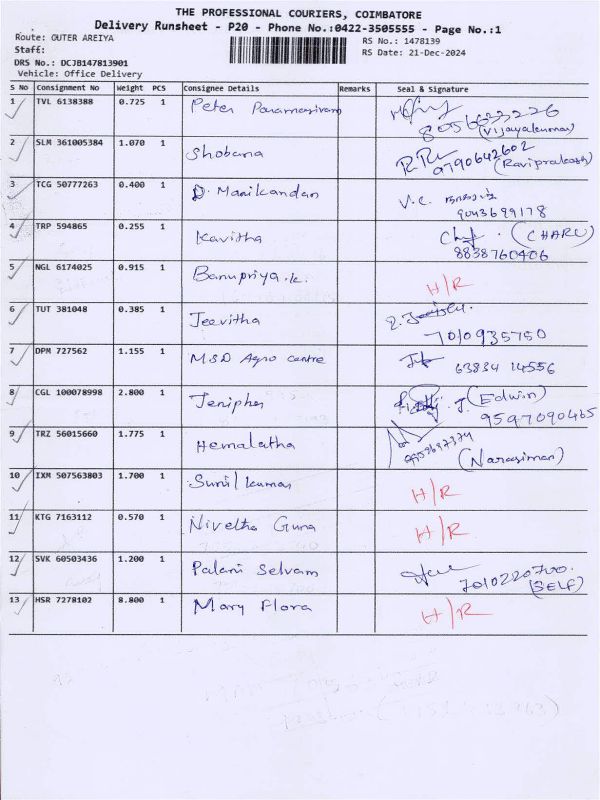 THE PROFESSIONAL COURIERS, COIMBATORE
Delivery Runsheet - P20 - Phone No.:0422-3505555 - Page No.:1
Route: OUTER AREIYA
RS No.: 1478139
Staff:
RS Date: 21-Dec-2024
DRS No.: DCJB147813901
Vehicle: Office Delivery
S No Consignment No Weight PCS Consignee Details Remarks Seal & Signature
1 TVL 6138388 0.725 1 Peter Paramasivam
8056633226
(Vijayakumar)
2 SLM 361005384 1.070 1 Shobana
9790642602
(Raviprakash)
3 TCG 50777263 0.400 1 D. Manikandan V.C.
9043699178
4 TRP 594865 0.255 1 Kavitha (CHARU)
8838760406
5 NGL 6174025 0.915 1 Banupriya.k. H/R
6 TUT 381048 0.385 1 Jeevitha
7010935750
7 DPM 727562 1.155 1 MSD Agro centre 63834 14556
8 CGL 100078998 2.800 1 Jenipher J. (Edwin)
9597090465
9 TRZ 56015660 1.775 1 Hemalatha
(Narasiman)
10 IXM 507563803 1.700 1 Sunil kumar H/R
11 KTG 7163112 0.570 1 Nivetha Guna H/R
12 SVK 60503436 1.200 1 Palani Selvam
7010220700.
(SELF)
13 HSR 7278102 8.800 1 Mary Flora H/R